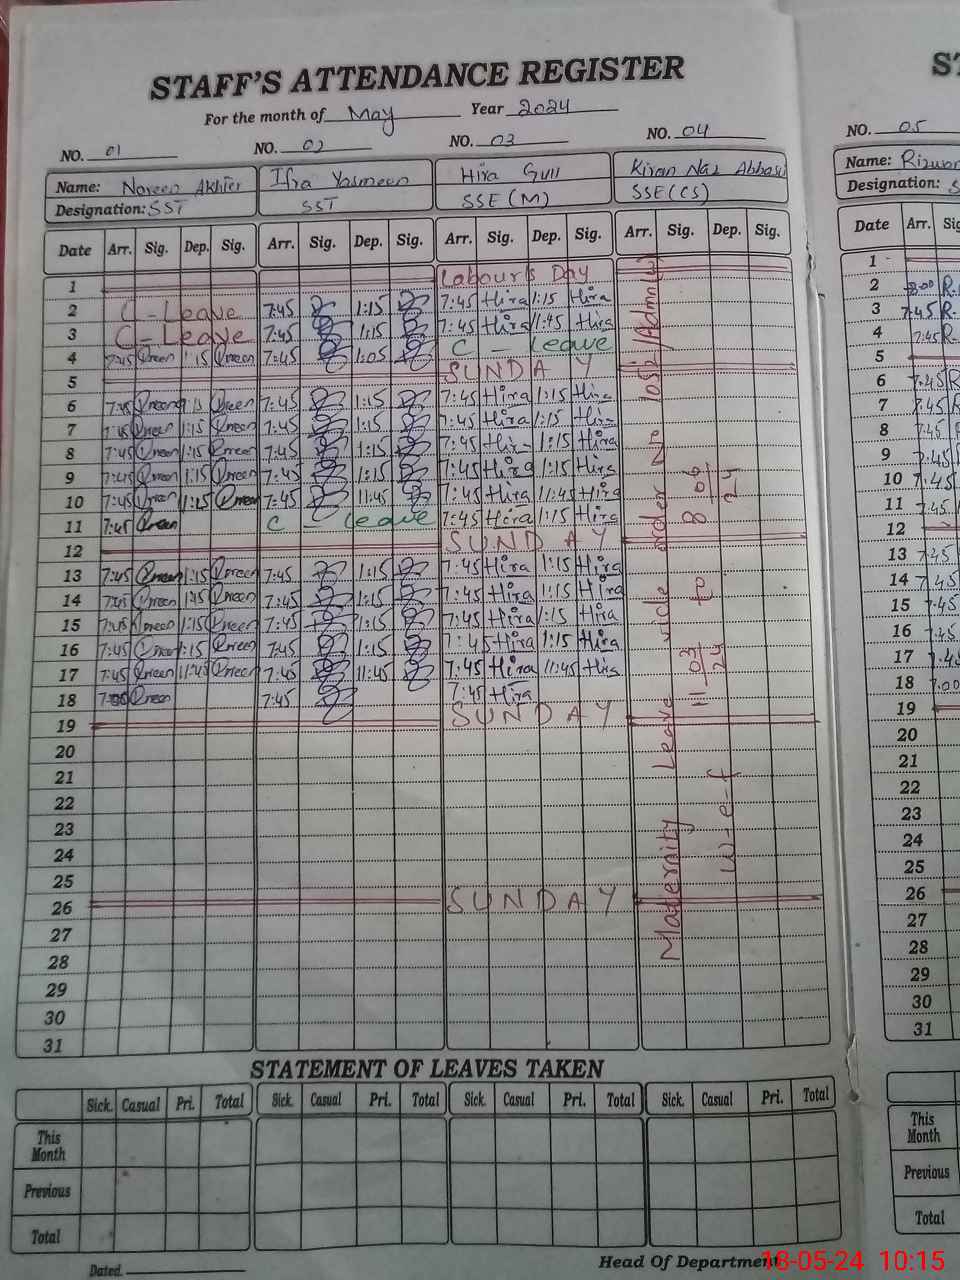 STAFF'S ATTENDANCE REGISTER
For the month of May Year 2024
NO. 01 NO. 02 NO. 03 NO. 04 NO. 05
Name: Noreen Akhter Ifra Yasmeen Hira Gull Kiran Naz Abbasi Name:
Designation: SST SST SSE (M) SSE (CS) Designation:
Date Arr. Sig. Dep. Sig. Arr. Sig. Dep. Sig. Arr. Sig. Dep. Sig. Arr. Sig. Dep. Sig. Date Arr.
1 Labour's Day 1
2 C - Leave 7:45 1:15 7:45 Hira 1:15 Hira 2 8:00 R.
3 C - Leave 7:45 1:15 7:45 Hira 11:45 Hira 3 7:45 R.
4 7:45 1:15 7:45 1:05 C - Leave 4 7:45 R.
5 SUNDAY 5
6 7:45 1:15 7:45 1:15 7:45 Hira 1:15 Hira 6 7:45
7 7:45 1:15 7:45 1:15 7:45 Hira 1:15 Hira 7 7:45
8 7:45 1:15 7:45 1:15 7:45 Hira 1:15 Hira 8 7:45
9 7:45 1:15 7:45 1:15 7:45 Hira 1:15 Hira 9 7:45
10 7:45 7:45 11:45 7:45 Hira 11:45 Hira 10 7:45
11 7:45 C - Leave 7:45 Hira 1:15 Hira 11 7:45
12 SUNDAY 12
13 7:45 1:15 7:45 1:15 7:45 Hira 1:15 Hira 13 7:45
14 7:45 1:15 7:45 1:15 7:45 Hira 1:15 Hira 14 7:45
15 7:45 1:15 7:45 1:15 7:45 Hira 1:15 Hira 15 7:45
16 7:45 1:15 7:45 1:15 7:45 Hira 1:15 Hira 16 7:45
17 7:45 11:45 7:45 11:45 7:45 Hira 11:45 Hira 17 7:45
18 7:45 7:45 Hira 18 7:00
19 SUNDAY 19
20 20
21 21
22 22
23 23
24 24
25 25
26 SUNDAY 26
27 27
28 28
29 29
30 30
31 31
Maternity Leave vide order No 1052/Admn
w-e-f 11 03/24 to 8 06/24
STATEMENT OF LEAVES TAKEN
Sick. Casual Pri. Total Sick. Casual Pri. Total Sick. Casual Pri. Total Sick. Casual Pri. Total
This Month This Month
Previous Previous
Total Total
Dated. Head Of Department
18-05-24 10:15